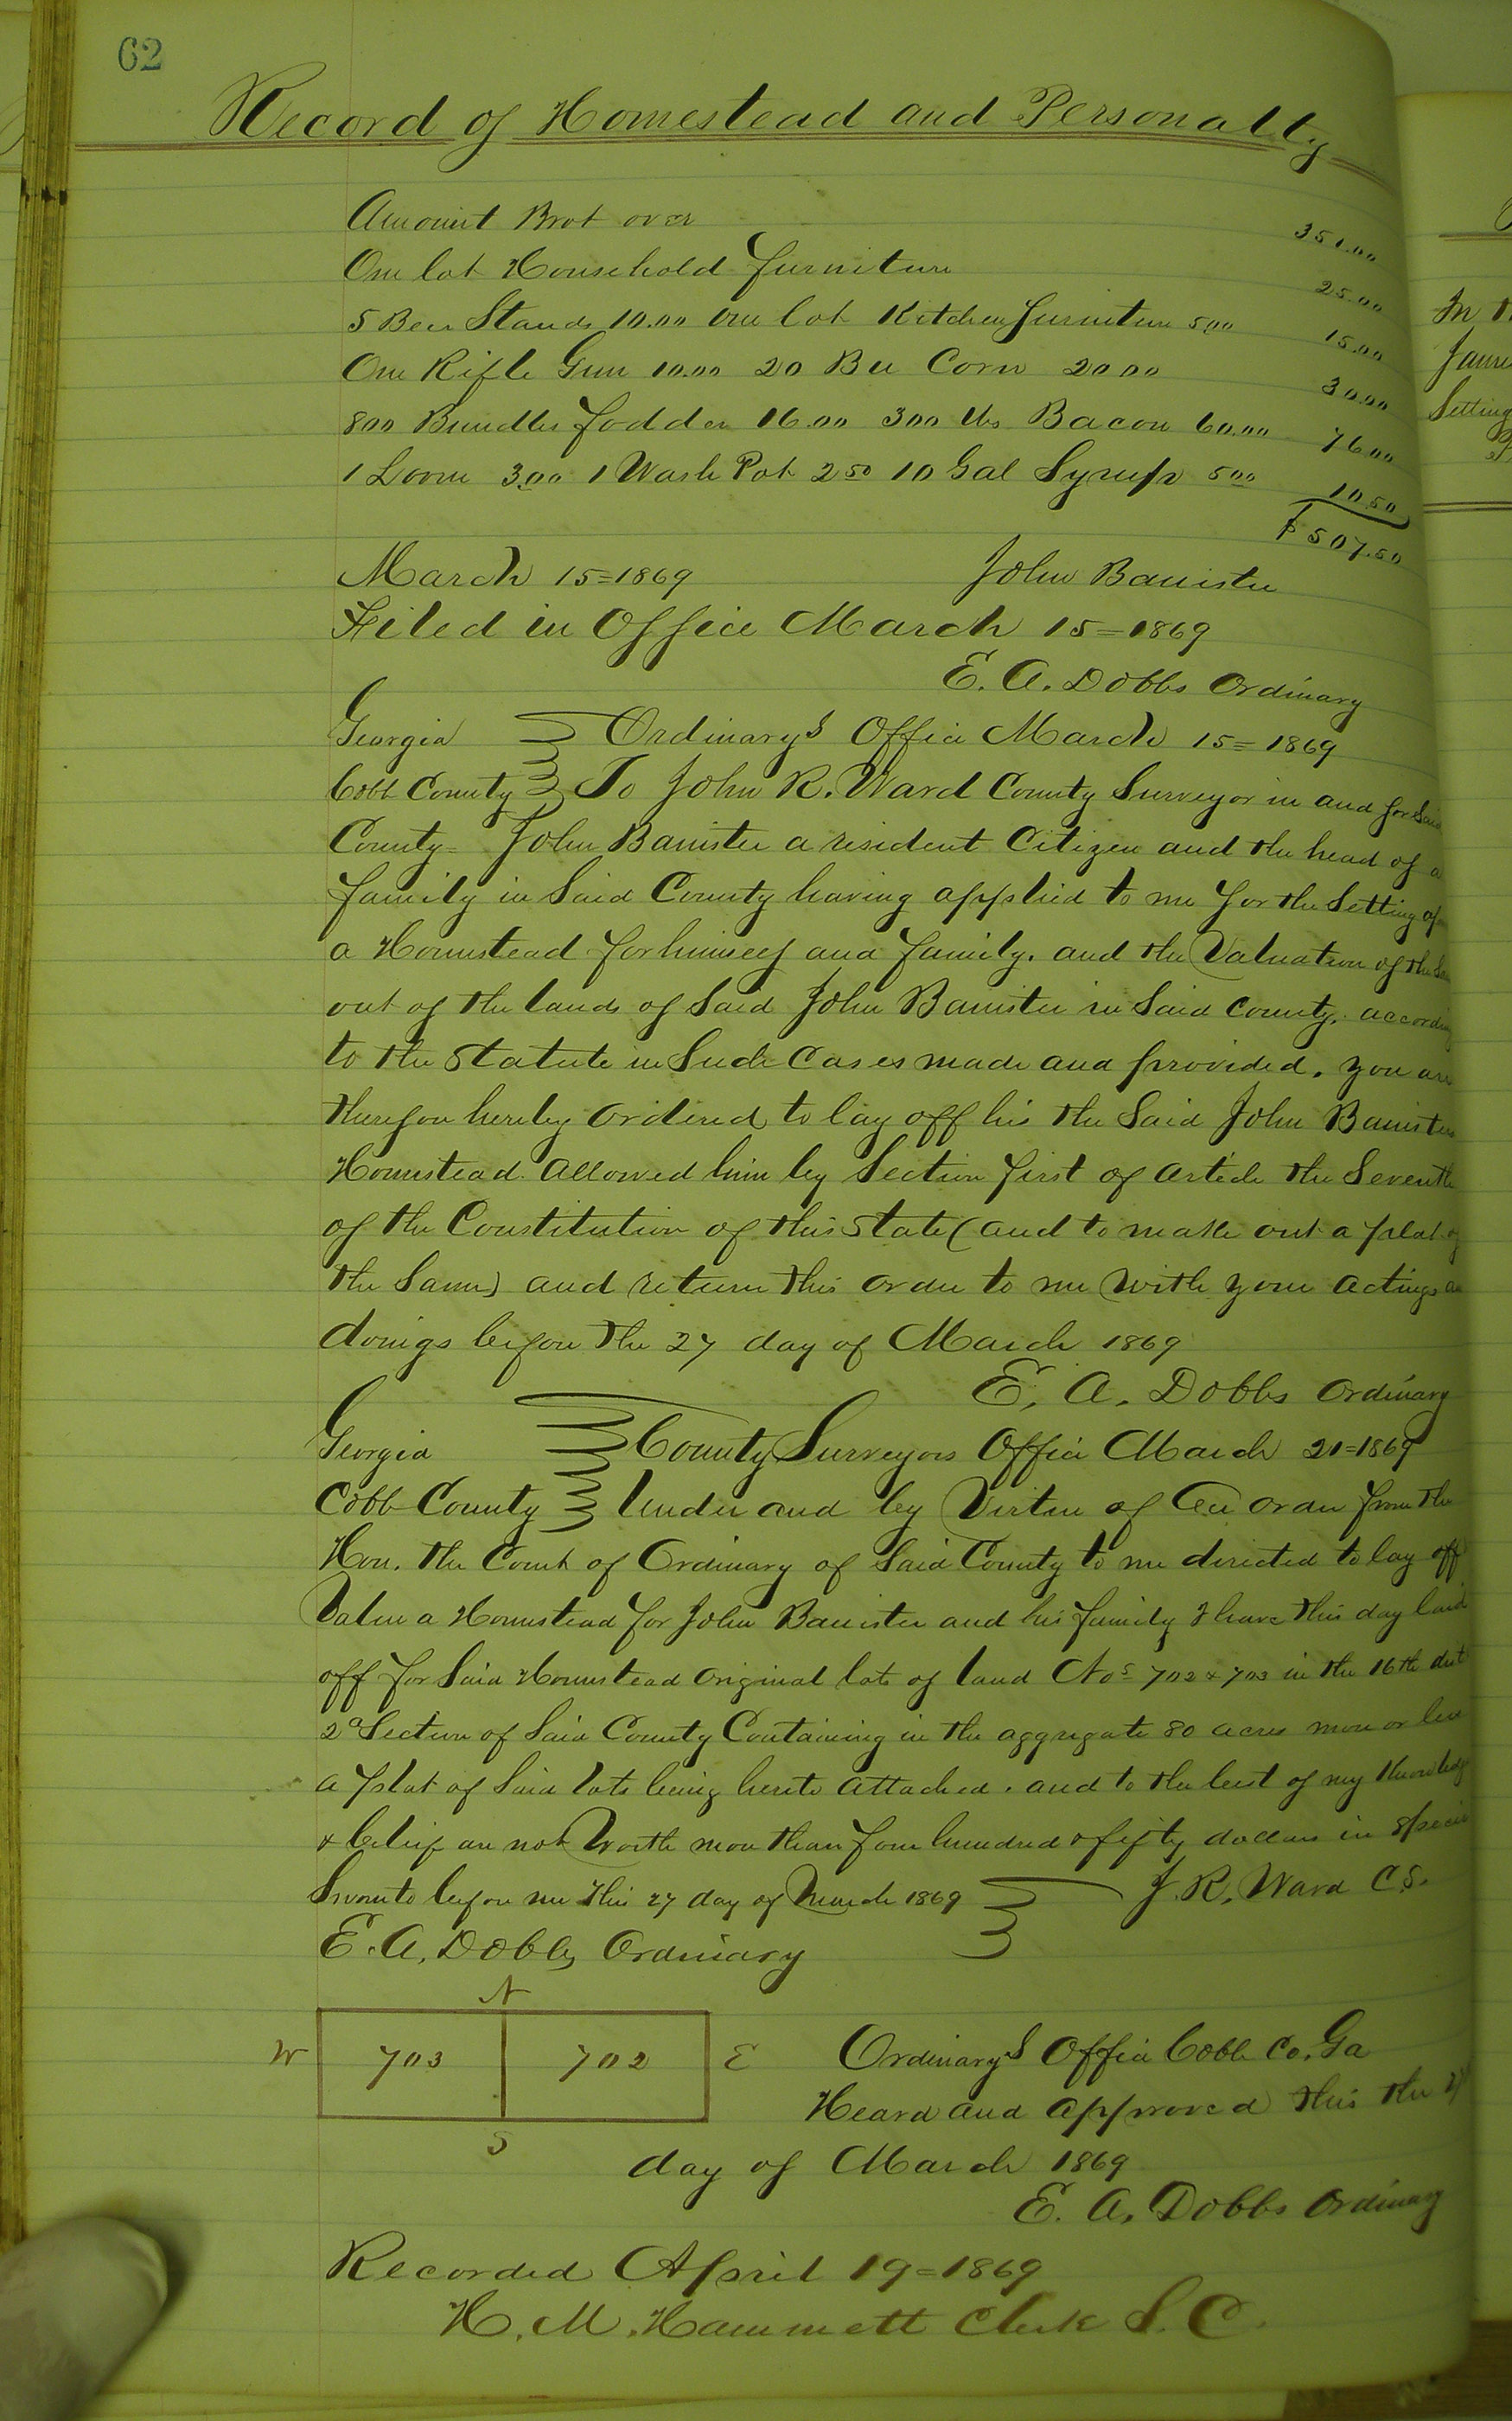 62
Record of Homestead and Personalty
Amount Brot over 351.00
One lot Household furniture 25.00
5 Bee Stands 10.00 One lot Kitchen furniture 5 00 15.00
One Rifle Gun 10.00 20 Bu Corn 20 00 30.00
800 Bundles fodder 16.00 300 lbs Bacon 60.00 76 00
1 Loom 3.00 1 Wash Pot 2 50 10 Gal Syrup 5 00 10 50
$ 507.50
March 15=1869 John Banister
Filed in Office March 15=1869
E. A. Dobbs Ordinary
Georgia Ordinarys Office March 15=1869
Cobb County To John R. Ward County Surveyor in and for Said
County= John Banister a resident Citizen and the head of a
family in Said County having applied to me for the Setting of
a Homestead for himself and family. and the Valuation of the
out of the lands of Said John Banister in Said County. according
to the Statute in Such Cases made and provided. you are
therefore hereby ordered to lay off his the Said John Banister
Homestead allowed him by Section first of Article the Seventh
of the Constitution of this State (and to make out a plat of
the Same) and return this order to me with your actings
doings before the 27 day of March 1869
E. A. Dobbs Ordinary
Georgia County Surveyors Office March 21=1869
Cobb County Under and by Virtue of An order from the
Hon. the Court of Ordinary of Said County to me directed to lay off
Value a Homestead for John Banister and his family I have this day laid
off for Said Homestead original lots of land Nos 702 & 703 in the 16th dist
2d Section of Said County Containing in the aggregate 80 acres more or less
a plat of Said lots being hereto attached. and to the best of my Knowledge
& belief are not Worth more than four hundred & fifty dollars in Specie
Sworn to before me this 27 day of March 1869 J. R. Ward C.S.
E. A. Dobbs Ordinary
N
W 703 702 E
S
Ordinarys Office Cobb Co. Ga
Heard and approved this the
day of March 1869
E. A. Dobbs Ordinary
Recorded April 19=1869
H. M. Hammett Clerk S. C.